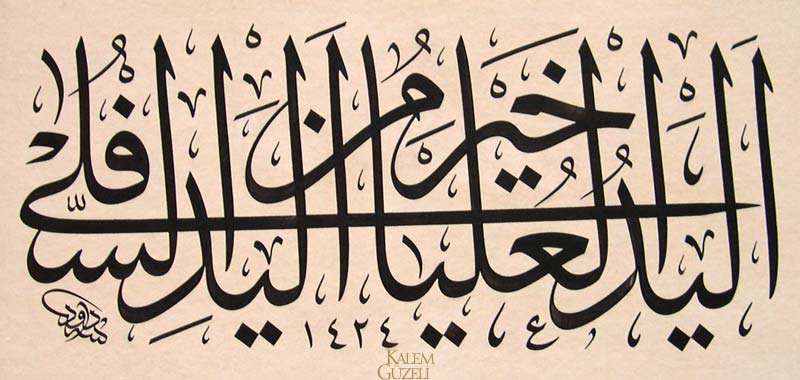 اَلْيَدُ الْعُلْيَا خَيْرٌ مِنَ الْيَدِ السُّفْلٰى
١٤٢٤
KALEM
GÜZELİ